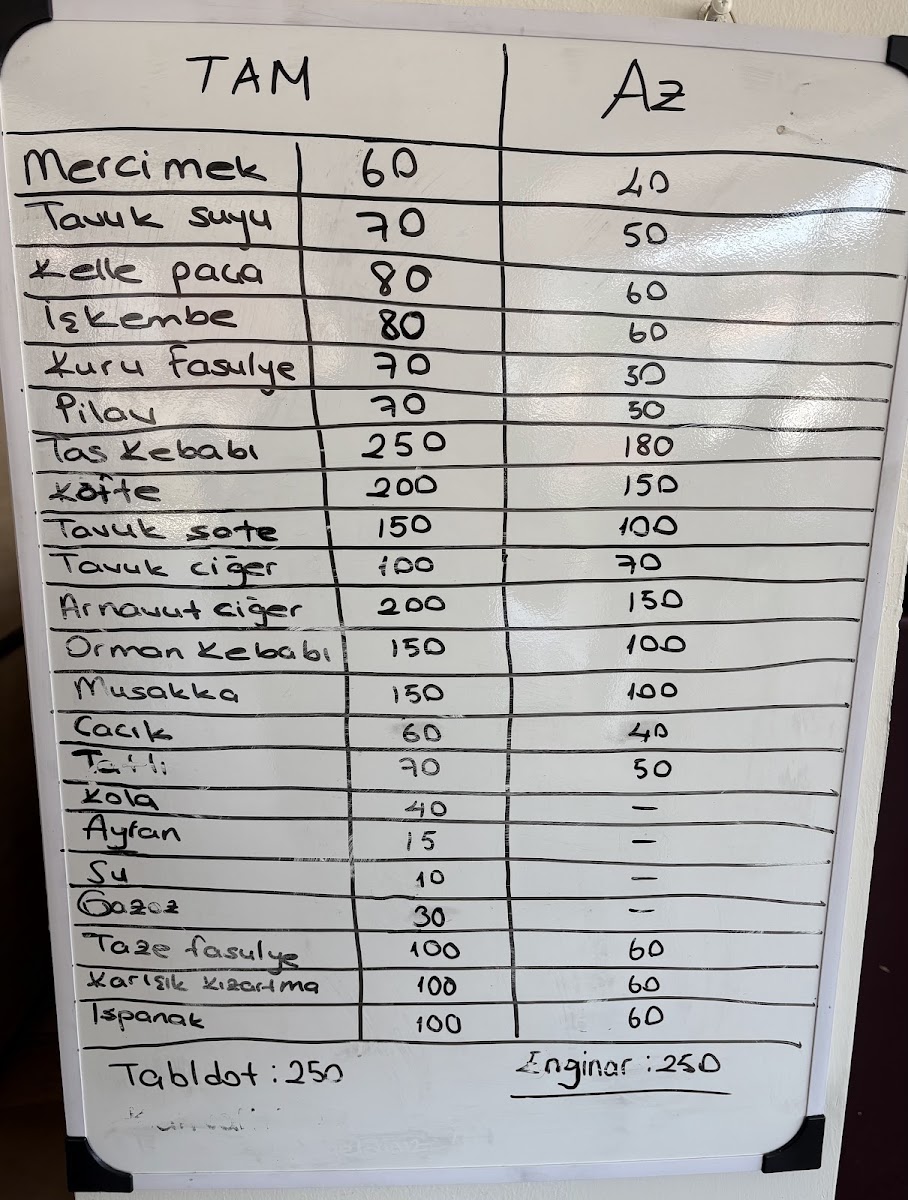 TAM Az
Mercimek 60 40
Tavuk suyu 70 50
Kelle paça 80 60
İşkembe 80 60
Kuru fasulye 70 50
Pilav 70 50
Tas Kebabı 250 180
Köfte 200 150
Tavuk sote 150 100
Tavuk ciğer 100 70
Arnavut ciğer 200 150
Orman Kebabı 150 100
Musakka 150 100
Cacık 60 40
Tatlı 70 50
Kola 40 -
Ayran 15 -
Su 10 -
Gazoz 30 -
Taze fasulye 100 60
Karışık kızartma 100 60
Ispanak 100 60
Tabldot : 250 Enginar : 250